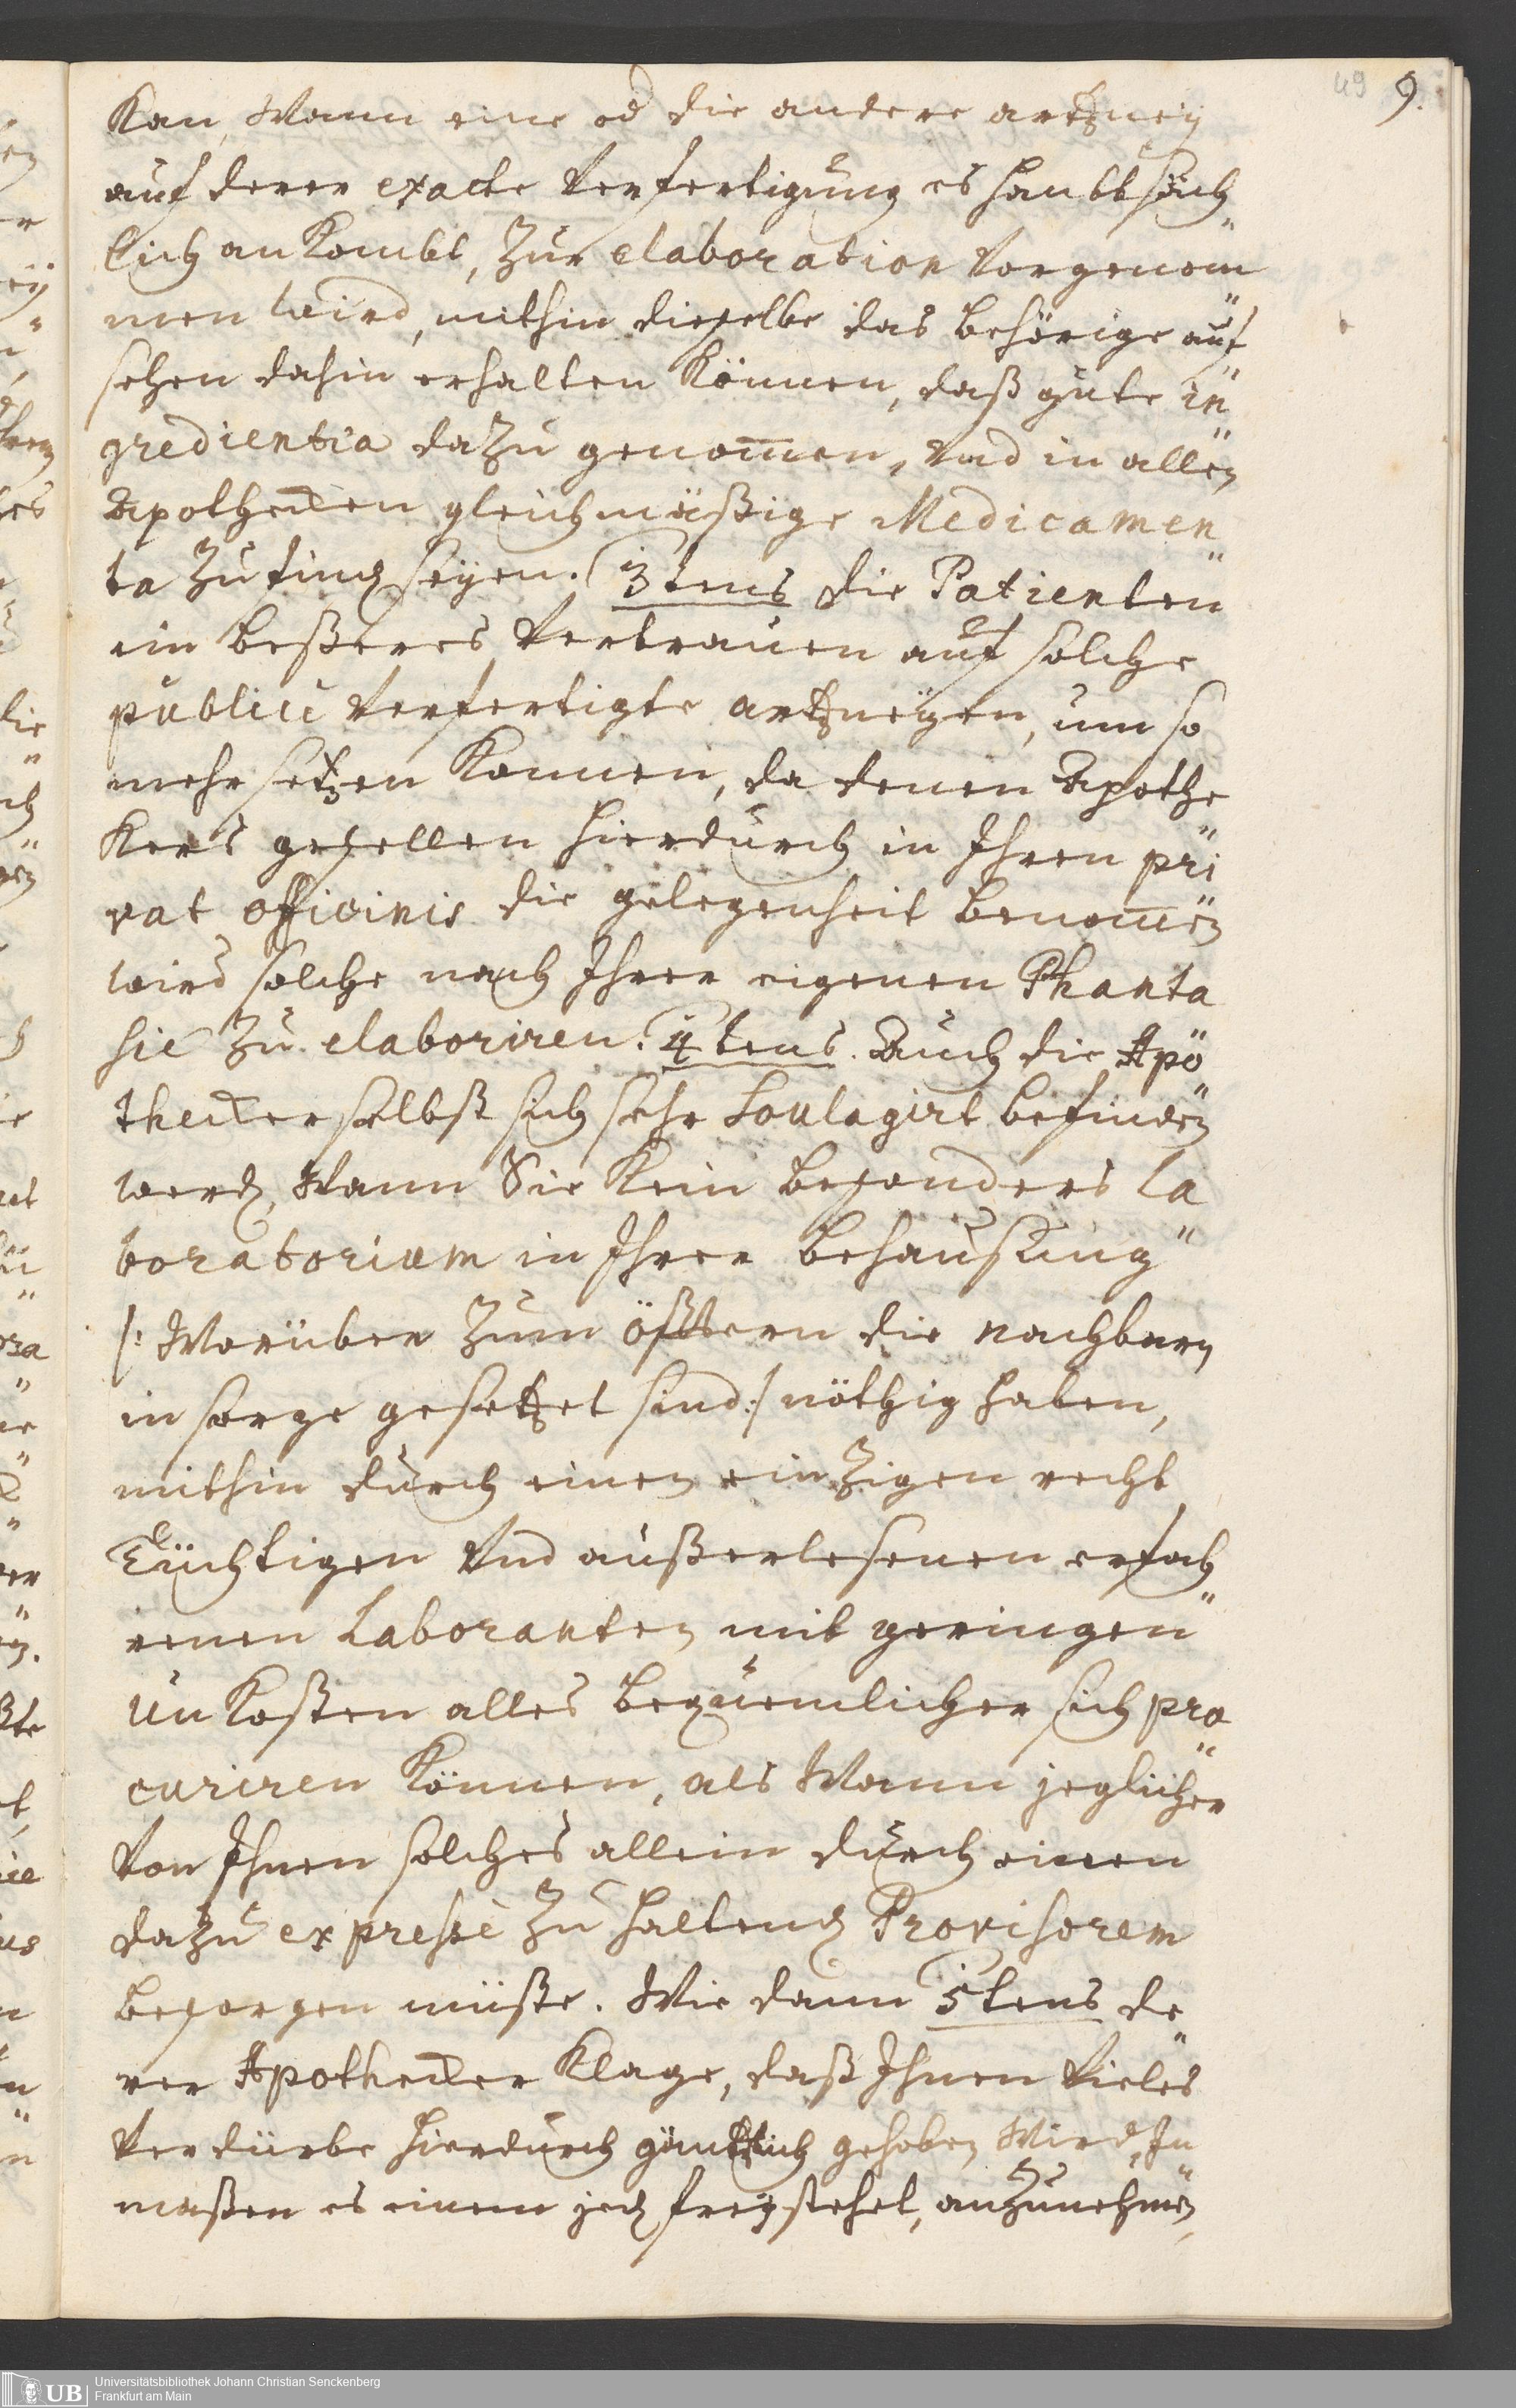 49 9.
Kan, Wann eine od die andere artzneÿ
auf derer exacte Verfertigung es haubtsäch"
lich ankombt, zur elaboration Vorgenom"
men wird, mithin dieselbe das behörige auf"
sehen dahin erhalten können, daß gute in"
gredientia dazu genom̅en, Vnd in allen
Apothecken gleichmäßige Medicamen"
ta zu find seÿen. 3tens die Patienten
ein beßeres Vertrauen auf solche
publicè Verfertigte artzneÿen, um so
mehr setzen Konnen, da denen Apothe"
kers gesellen hierdurch in Ihren pri"
vat officinis die gelegenheit benom̅en
wird solche nach Ihrer eigenen Phanta"
sie zu elaboriren. 4tens. Auch die Apo"
thecker selbst sich sehr Soulagirt befinden
werd, Wann Sie Kein besonders la"
boratorium in Ihrer behaußung
/: Worüber zum öfftern die nachbarn
in sorge gesetzet sind :/ nöthig haben,
mithin durch einen eintzigen recht
Tüchtigen Vnd außerlesenen erfah"
renen Laboranten mit geringen
unkosten alles bequemlicher sich pro"
curiren können, als Wann jeglicher
Von Ihnen solches allein durch einen
dazu expressè zu haltend Provisorem
besorgen müste. Wie dann 5tens de"
rer Apothecker Klage, daß Ihnen Vieles
Verdürbe hierdurch gäntzlich gehoben Wird, In"
maßen es einem jed freÿ stehet, anzunehmen,
Universitätsbibliothek Johann Christian Senckenberg
Frankfurt am Main
UB